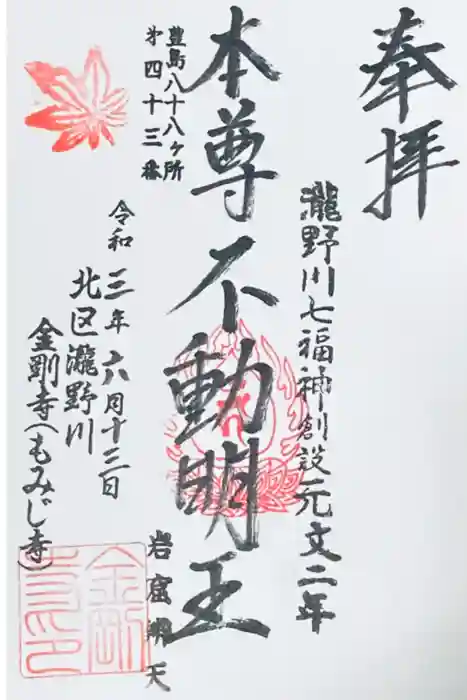 奉拝
瀧野川七福神創設元文二年
本尊不動明王
岩窟辨天
豊島八十八ヶ所
第四十三番
令和三年六月十三日
北区瀧野川
金剛寺(もみじ寺)
金剛
寺印